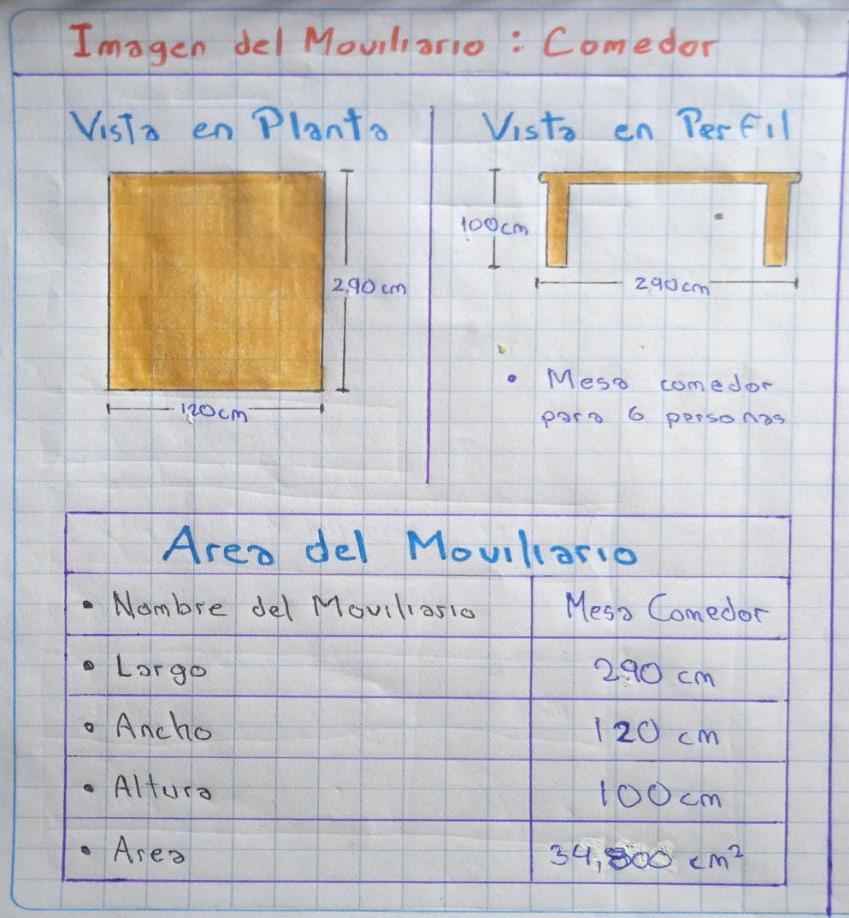 Imagen del Moviliario : Comedor
Vista en Planta
290 cm
120cm
Vista en Perfil
100cm
290cm
• Mesa comedor
para 6 personas
Area del Moviliario
• Nombre del Moviliario Mesa Comedor
• Largo 290 cm
• Ancho 120 cm
• Altura 100cm
• Area 34,800 cm²